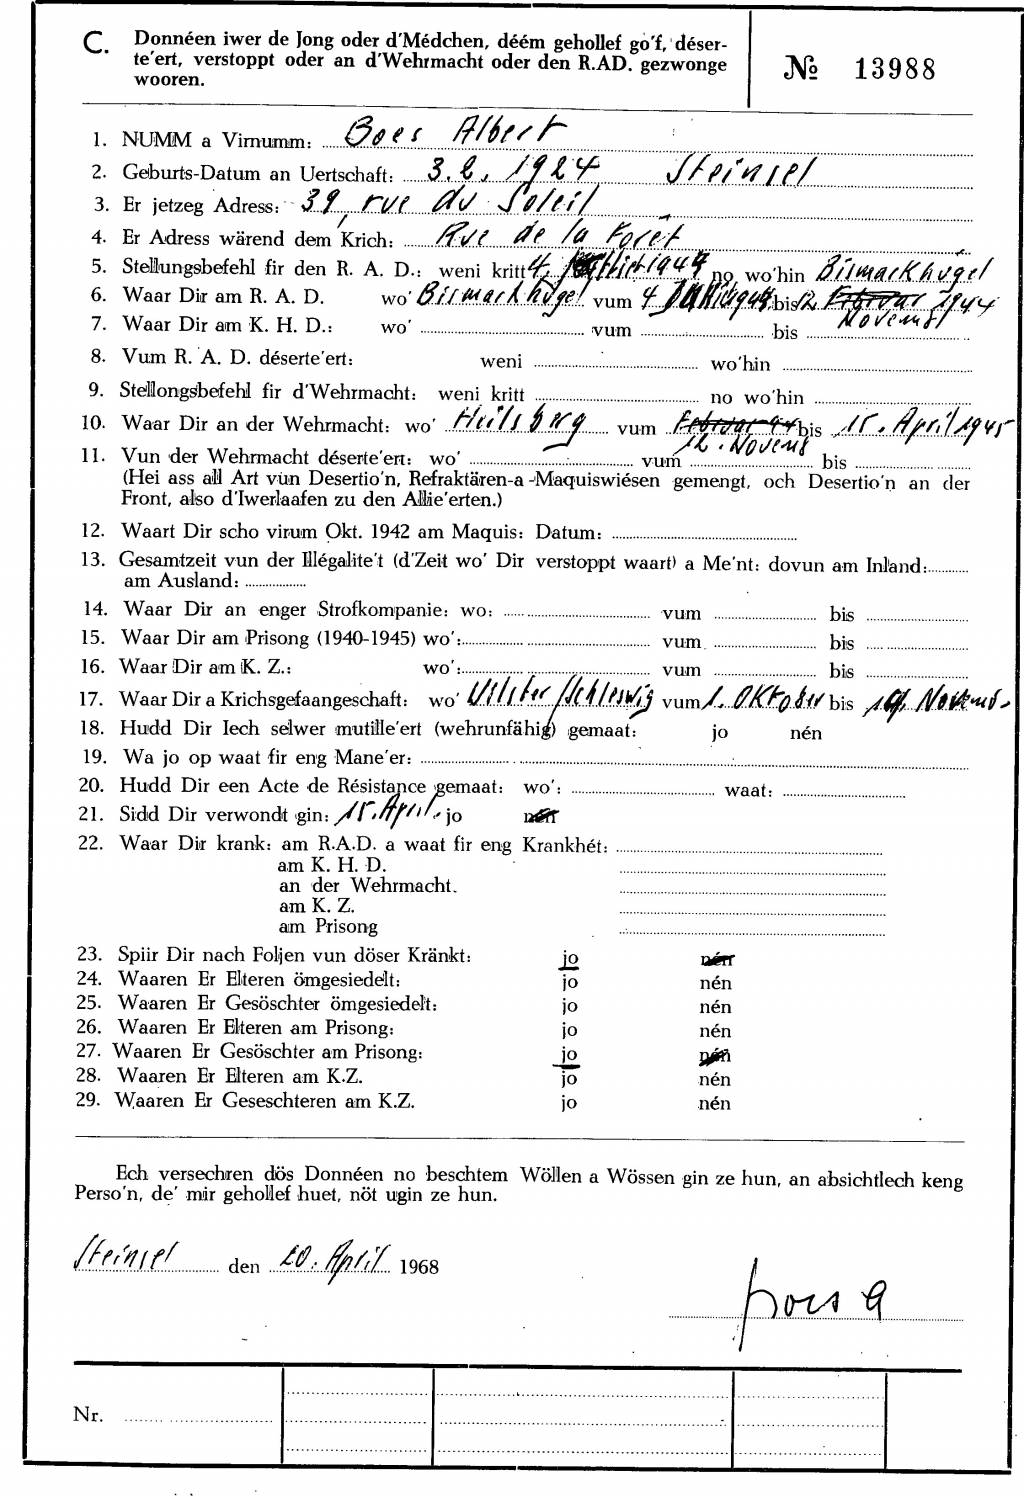 C. Donnéen iwer de Jong oder d'Médchen, déém gehollef go'f, déser-
te'ert, verstoppt oder an d'Wehrmacht oder den R.AD. gezwonge
wooren.
№ 13988
1. NUMM a Virnumm: Boes Albert
2. Geburts-Datum an Uertschaft: 3.2. 1924 Steinsel
3. Er jetzeg Adress: 39, rue du Soleil
4. Er Adress wärend dem Krich: Rue de la Forêt
5. Stellungsbefehl fir den R. A. D.: weni kritt 4. no wo'hin Bismarkhügel
6. Waar Dir am R. A. D. wo' Bismarkhügel vum 4 bis 12. Februar 1944
Novemb
7. Waar Dir am K. H. D.: wo' vum bis
8. Vum R. A. D. déserte'ert: weni wo'hin
9. Stellongsbefehl fir d'Wehrmacht: weni kritt no wo'hin
10. Waar Dir an der Wehrmacht: wo' Heilsberg vum Februar 44 bis 15. April 1945
12. Novemb
11. Vun der Wehrmacht déserte'ert: wo' vum bis
(Hei ass all Art vun Desertio'n, Refraktären-a-Maquiswiésen gemengt, och Desertio'n an der
Front, also d'Iwerlaafen zu den Allie'erten.)
12. Waart Dir scho virum Okt. 1942 am Maquis: Datum:
13. Gesamtzeit vun der Illégalite't (d'Zeit wo' Dir verstoppt waart) a Me'nt: dovun am Inland:
am Ausland:
14. Waar Dir an enger Strofkompanie: wo: vum bis
15. Waar Dir am Prisong (1940-1945) wo': vum bis
16. Waar Dir am K. Z.: wo': vum bis
17. Waar Dir a Krichsgefaangeschaft: wo' Wilster/Schleswig vum 1. Oktober bis Novemb.
18. Hudd Dir Iech selwer mutille'ert (wehrunfähig) gemaat: jo nén
19. Wa jo op waat fir eng Mane'er:
20. Hudd Dir een Acte de Résistance gemaat: wo': waat:
21. Sidd Dir verwondt gin: 15. April. jo nén
22. Waar Dir krank: am R.A.D. a waat fir eng Krankhét:
am K. H. D.
an der Wehrmacht.
am K. Z.
am Prisong
23. Spiir Dir nach Foljen vun döser Kränkt: jo nén
24. Waaren Er Elteren ömgesiedelt: jo nén
25. Waaren Er Gesöschter ömgesiedelt: jo nén
26. Waaren Er Elteren am Prisong: jo nén
27. Waaren Er Gesöschter am Prisong: jo nén
28. Waaren Er Elteren am K.Z. jo nén
29. Waaren Er Geseschteren am K.Z. jo nén
Ech versechren dös Donnéen no beschtem Wöllen a Wössen gin ze hun, an absichtlech keng
Perso'n, de' mir gehollef huet, nöt ugin ze hun.
Steinsel den 20. April 1968
Boes A
Nr.